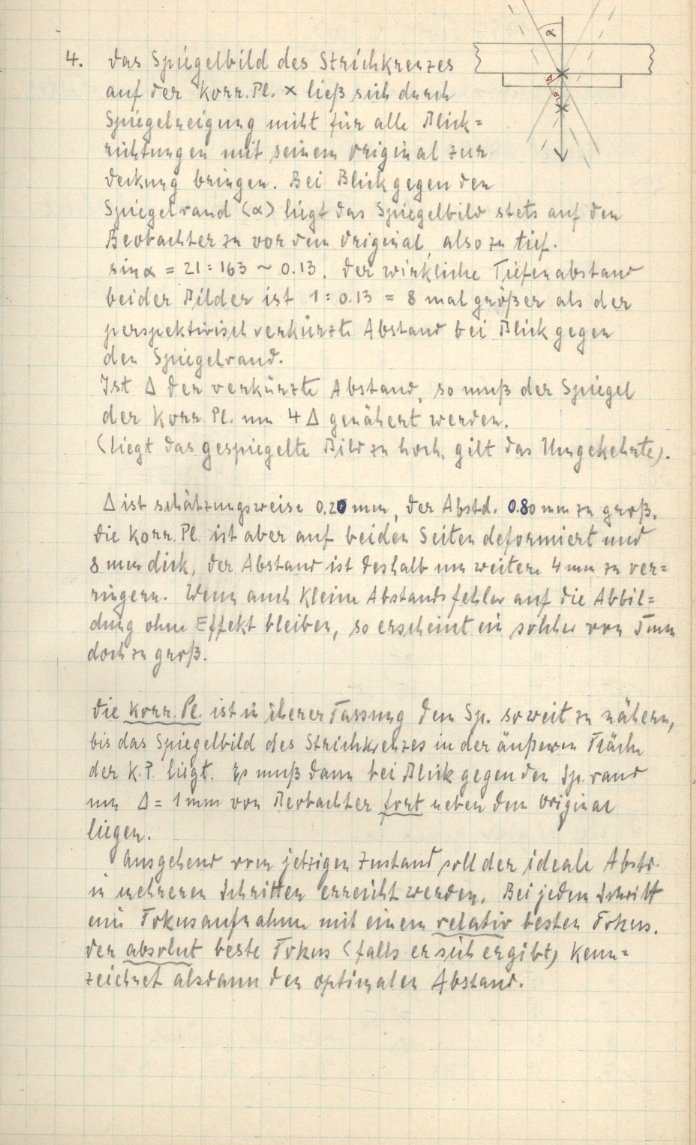 α
4. Das Spiegelbild des Strichkreuzes
auf der Korr.Pl. × ließ sich durch
Spiegelneigung nicht für alle Blick=
richtungen mit seinem Original zur
Deckung bringen. Bei Blick gegen den
Spiegelrand (α) liegt das Spiegelbild stets auf den
Beobachter zu vor dem Original, also zu tief.
sin α = 21 : 163 ~ 0.13. Der wirkliche Tiefenabstand
beider Bilder ist 1 : 0.13 = 8 mal größer als der
perspektivisch verkürzte Abstand bei Blick gegen
den Spiegelrand.
Ist Δ der verkürzte Abstand, so muß der Spiegel
der Korr. Pl. um 4 Δ genähert werden.
(Liegt das gespiegelte Bild zu hoch, gilt das Umgekehrte).
Δ ist schätzungsweise 0.20 mm, der Abstd. 0.80 mm zu groß.
Die Korr. Pl. ist aber auf beiden Seiten deformiert und
8 mm dick, der Abstand ist deshalb um weitere 4 mm zu ver=
ringern. Wenn auch kleine Abstandsfehler auf die Abbil=
dung ohne Effekt bleiben, so erscheint ein solcher von 5 mm
doch zu groß.
Die Korr. Pl. ist in ihrer Fassung dem Sp. soweit zu nähern,
bis das Spiegelbild des Strichkreuzes in der äußeren Fläche
der K.P. liegt. Es muß dann bei Blick gegen den Sp.rand
um Δ = 1 mm vom Beobachter fort neben dem Original
liegen.
Ausgehend vom jetzigen Zustand soll der ideale Abstd.
in mehreren Schritten erreicht werden. Bei jedem Schritt
eine Fokusaufnahme mit einem relativ besten Fokus.
Der absolut beste Fokus (falls er sich ergibt) kenn=
zeichnet alsdann den optimalen Abstand.